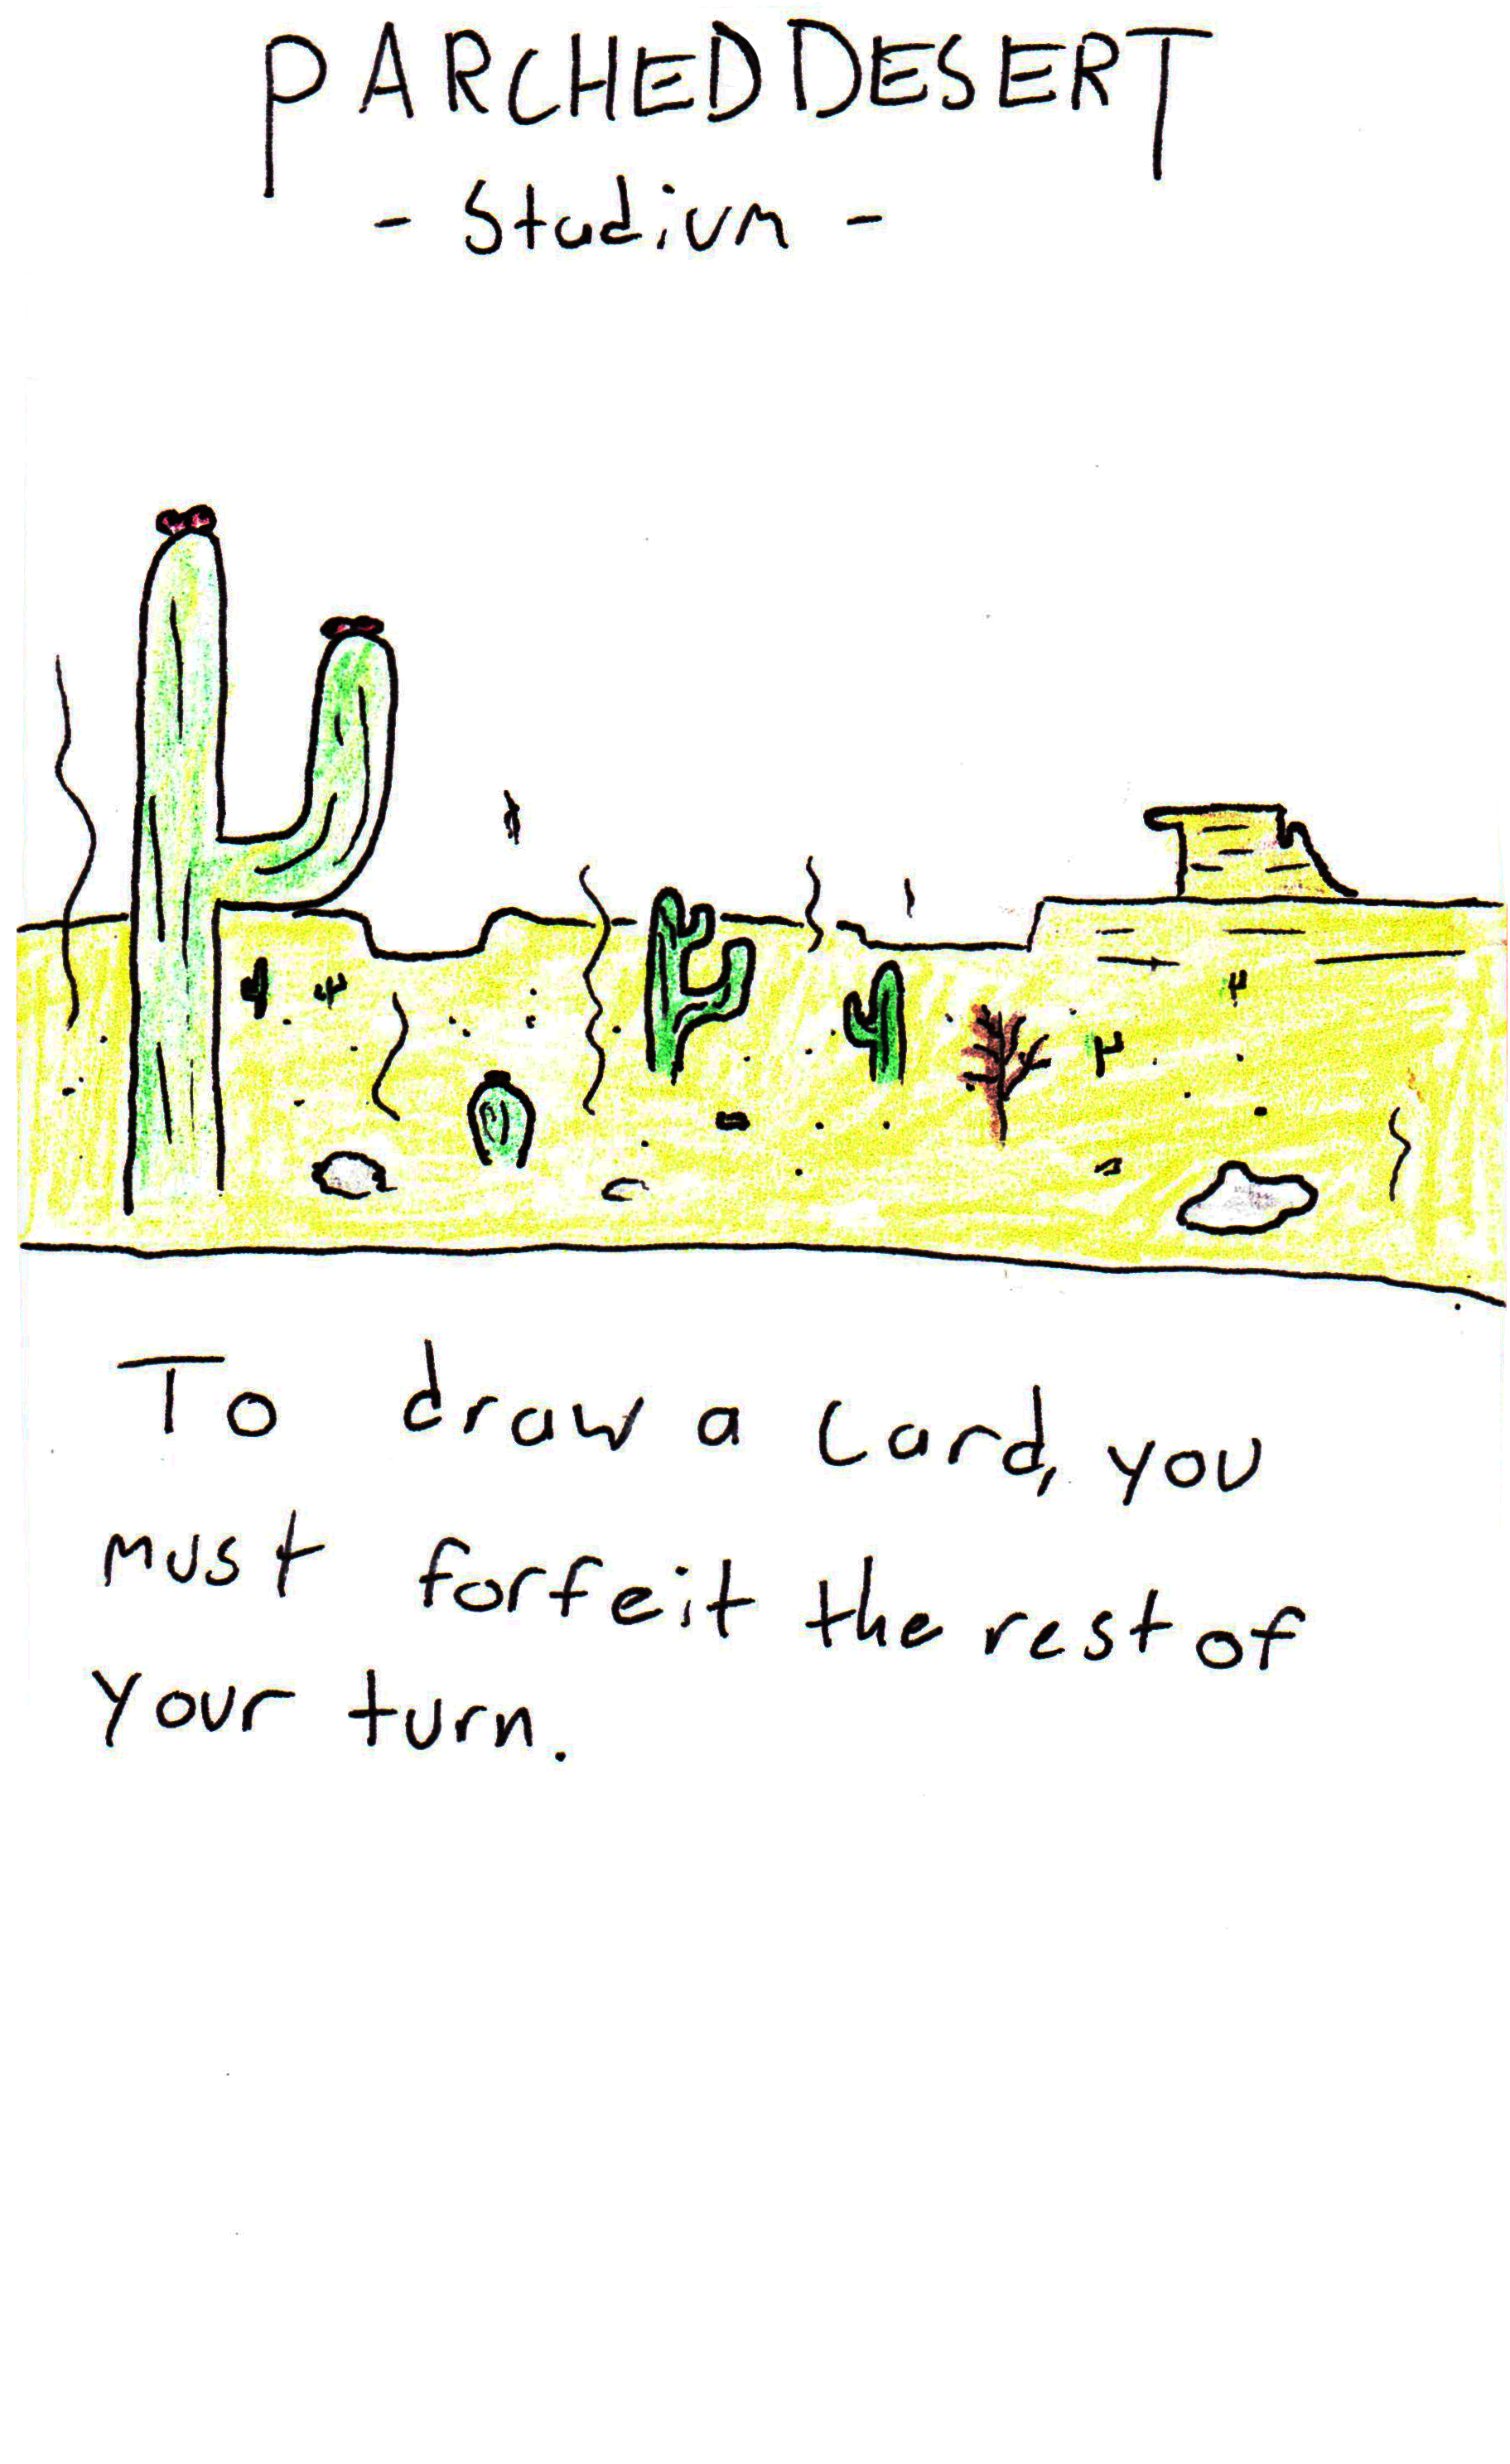 PARCHED DESERT
- Stadium -
To draw a card, you
must forfeit the rest of
your turn.